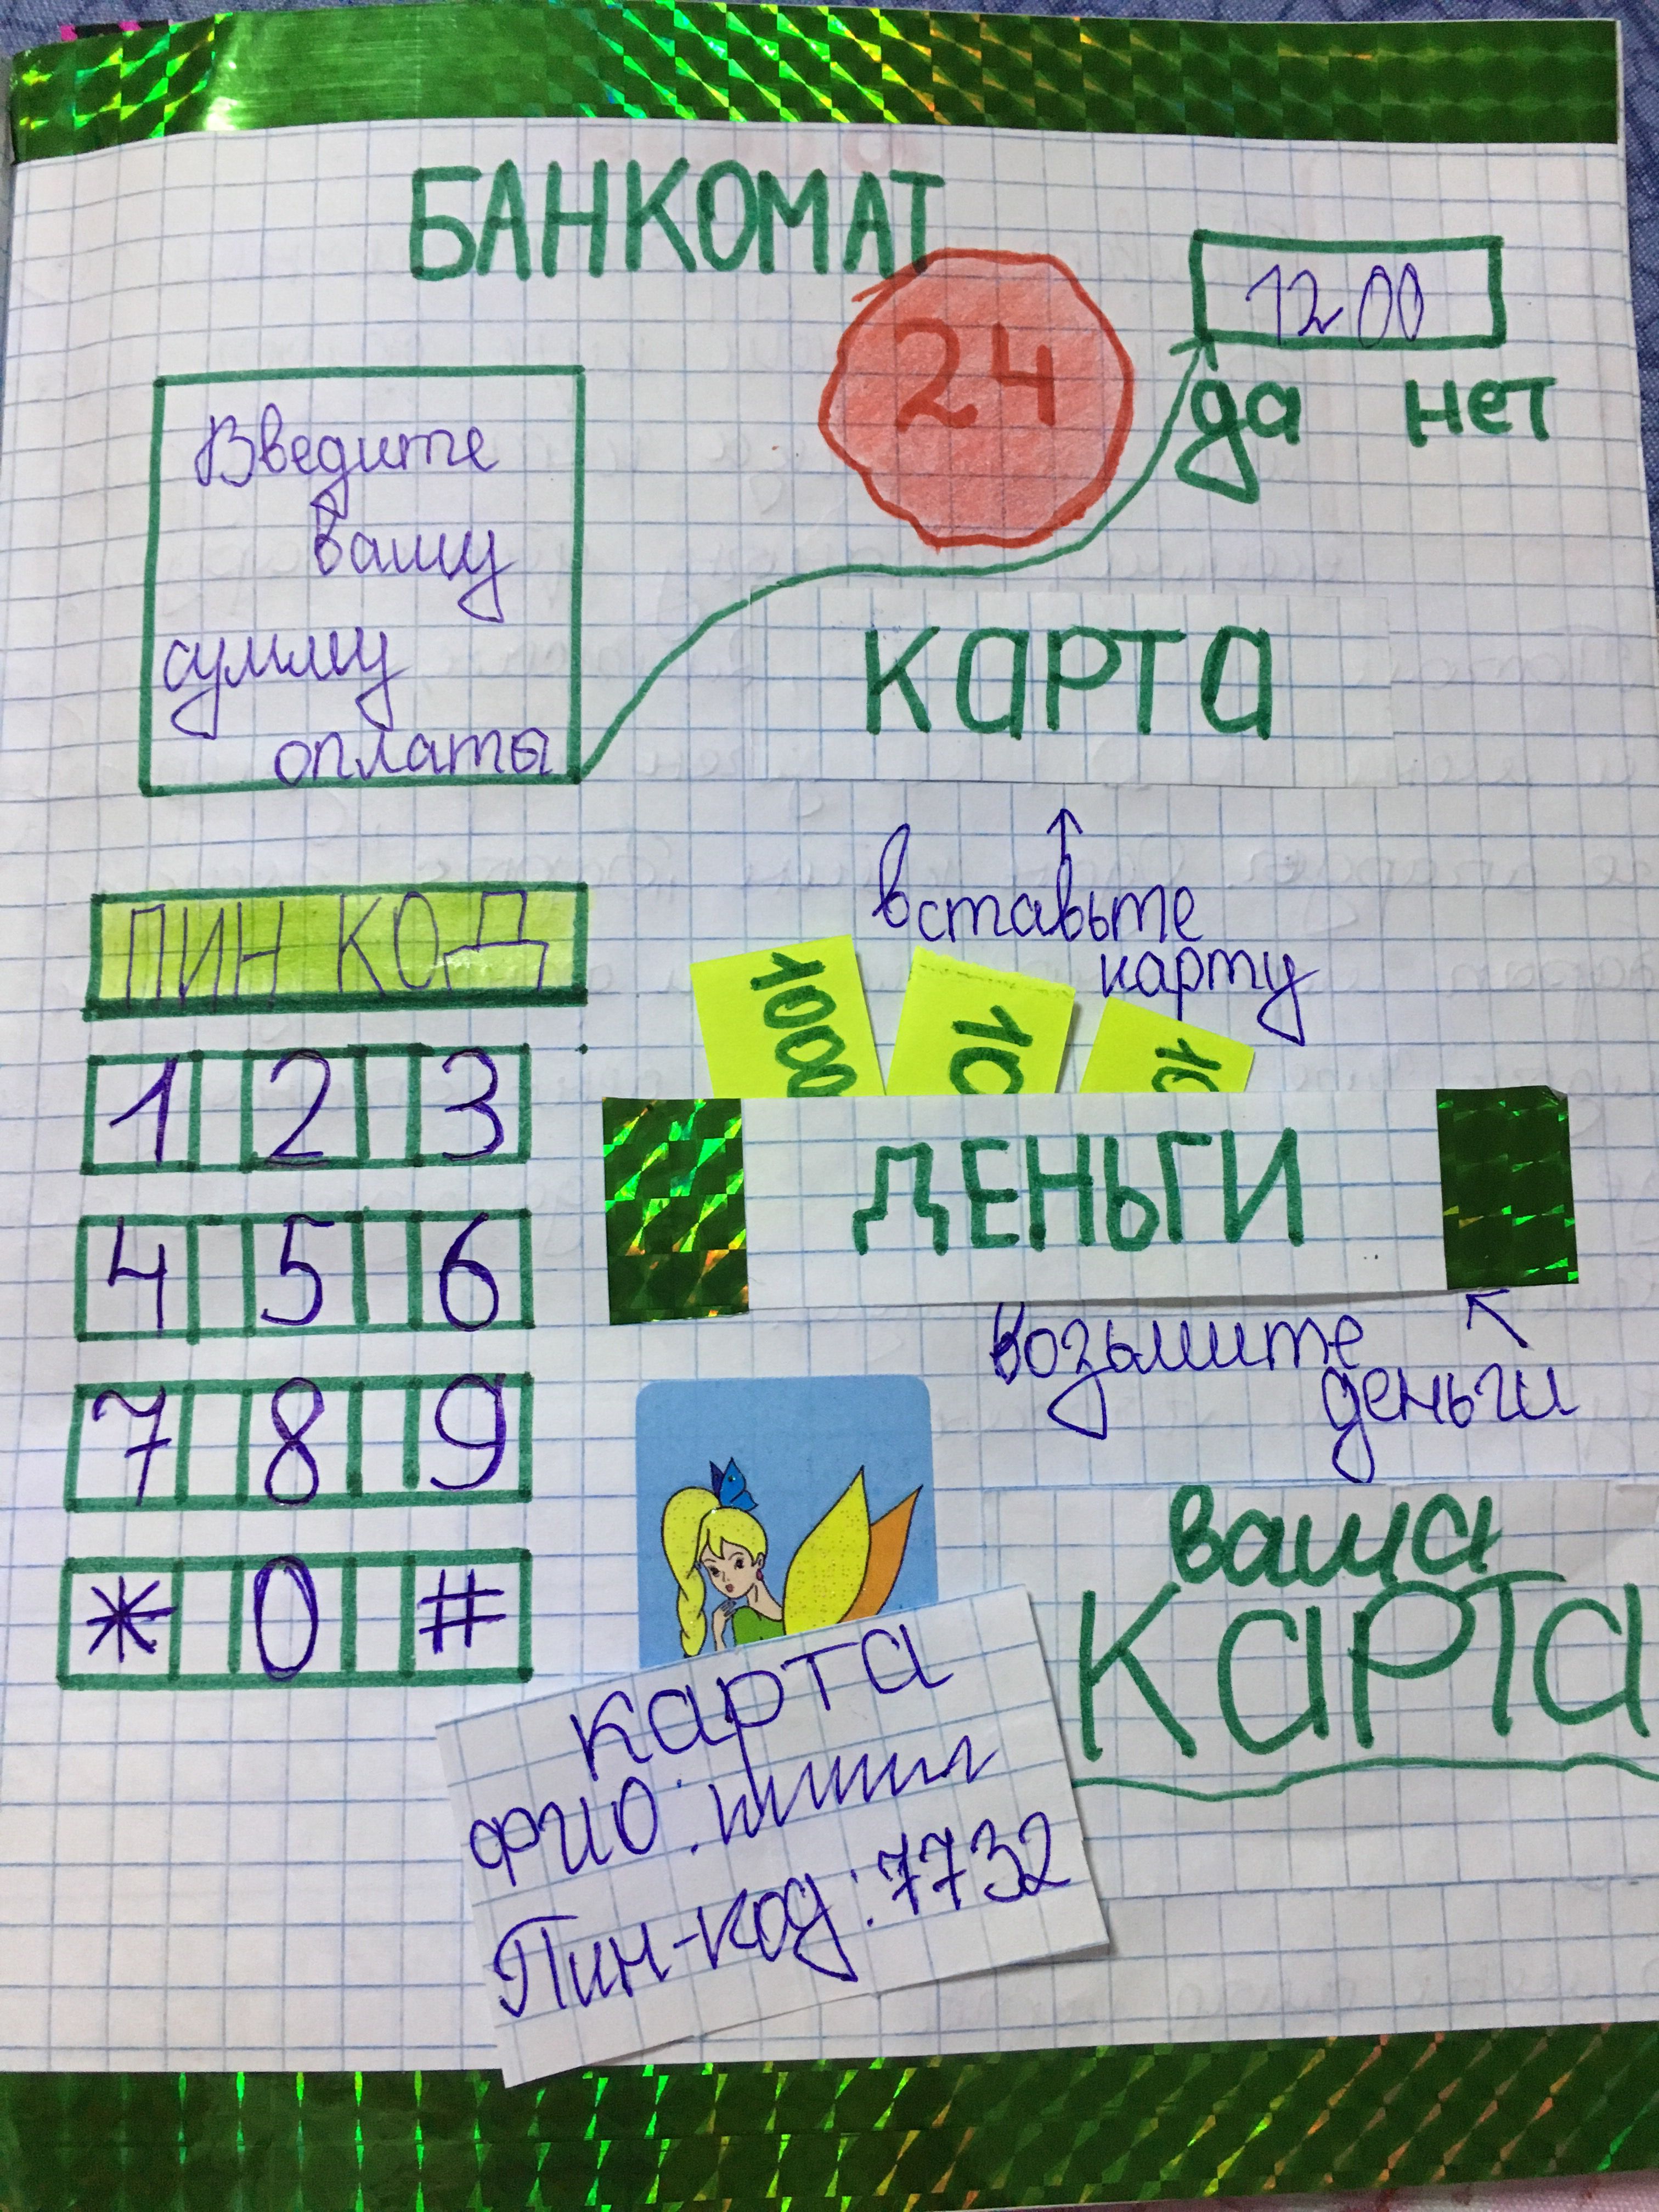 БАНКОМАТ
24
1200
да нет
Введите
вашу
сумму
оплаты
КАРТА
вставьте
карту
ПИН КОД
1 2 3
4 5 6
7 8 9
* 0 #
1000
10
10
ДЕНЬГИ
возьмите
деньги
ваша
КАРТА
карта
ФИО:
Пин-код: 7732